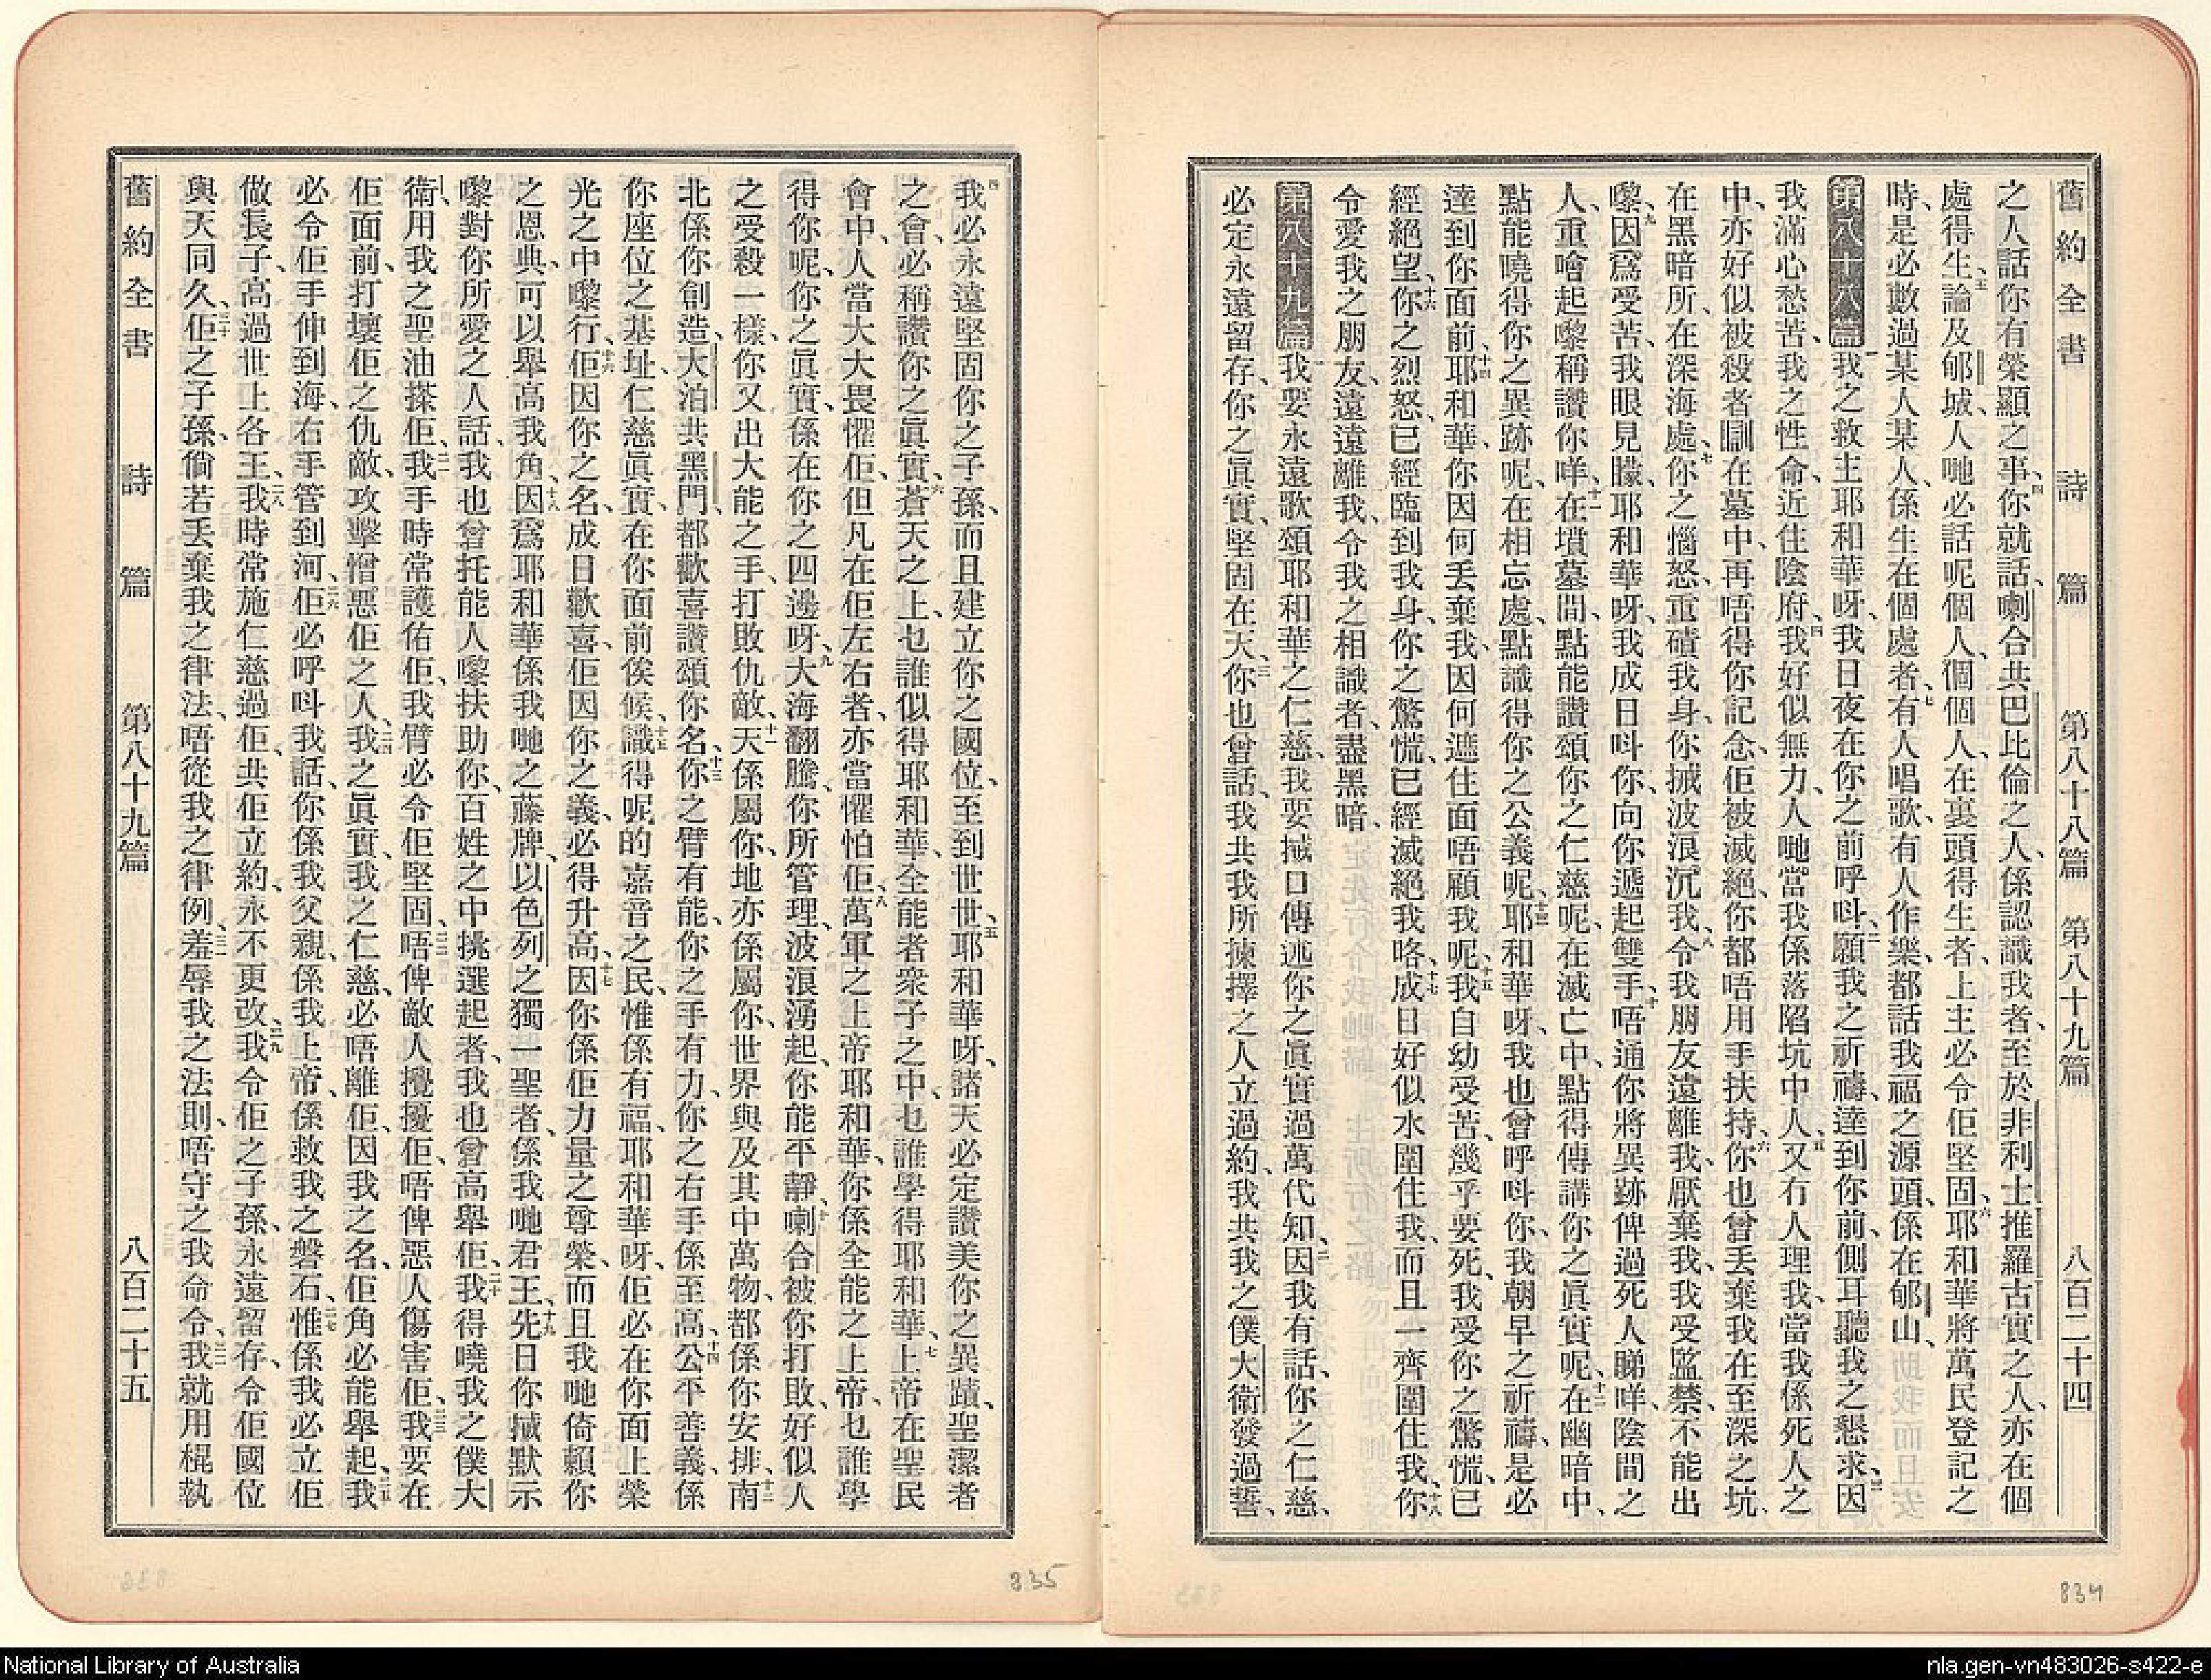 舊約全書 詩篇 第八十八篇 第八十九篇 八百二十四
之人話你有榮顯之事、四你就話、喇合共巴比倫之人、係認識我者、至於非利士推羅古實之人、亦在個
處得生、五論及郇城、人哋必話呢個人、個個人、在裏頭得生者、上主必令佢堅固、六耶和華將萬民登記之
時、是必數過某人某人、係生在個處者、七有人唱歌、有人作樂、都話我福之源頭、係在郇山、
第八十八篇 一我之救主耶和華呀、我日夜在你之前呼呌、二願我之祈禱、達到你前、側耳聽我之懇求、三因
我滿心愁苦、我之性命、近住陰府、四我好似無力、人哋當我係落陷坑中人、五又冇人理我、當我係死人之
中、亦好似被殺者瞓在墓中、再唔得你記念、佢被滅絕、你都唔用手扶持、六你也曾丟棄我在至深之坑、
在黑暗所、在深海處、七你之惱怒、重磧我身、你揻波浪沉我、八令我朋友遠離我、厭棄我、我受監禁、不能出
嚟、九因爲受苦、我眼見矇、耶和華呀、我成日呌你、向你遞起雙手、十唔通你將異跡俾過死人睇咩、陰間之
人、重噲起嚟稱讚你咩、十一在墳墓間、點能讚頌你之仁慈呢、在滅亡中、點得傳講你之眞實呢、十二在幽暗中、
點能曉得你之異跡呢、在相忘處、點識得你之公義呢、十三耶和華呀、我也曾呼呌你、我朝早之祈禱、是必
達到你面前、十四耶和華、你因何丟棄我、因何遮住面唔顧我呢、十五我自幼受苦、幾乎要死、我受你之驚慌、已
經絕望、十六你之烈怒、已經臨到我身、你之驚慌、已經滅絕我咯、十七成日好似水圍住我、而且一齊圍住我、十八你
令愛我之朋友、遠遠離我、令我之相識者、盡黑暗、
第八十九篇 一我要永遠歌頌耶和華之仁慈、我要揻口傳述你之眞實過萬代知、二因我有話、你之仁慈、
必定永遠留存、你之眞實、堅固在天、三你也曾話、我共我所揀擇之人立過約、我共我之僕大衛發過誓、
四我必永遠堅固你之子孫、而且建立你之國位、至到世世、五耶和華呀、諸天必定讚美你之異蹟、聖潔者
之會、必稱讚你之眞實、六蒼天之上、乜誰似得耶和華、全能者衆子之中、乜誰學得耶和華、七上帝在聖民
會中、人當大大畏懼佢、但凡在佢左右者、亦當懼怕佢、八萬軍之上帝耶和華、你係全能之上帝、乜誰學
得你呢、你之眞實、係在你之四邊呀、九大海翻騰、你所管理、波浪湧起、你能平靜、十喇合被你打敗、好似人
之受殺一樣、你又出大能之手、打敗仇敵、十一天係屬你、地亦係屬你、世界與及其中萬物、都係你安排、十二南
北係你創造、大泊共黑門、都歡喜讚頌你名、十三你之臂有能、你之手有力、你之右手係至高、十四公平善義、係
你座位之基址、仁慈眞實、在你面前俟候、十五識得呢的嘉音之民、惟係有福、耶和華呀、佢必在你面上榮
光之中嚟行、十六佢因你之名、成日歡喜、佢因你之義、必得升高、十七因你係佢力量之尊榮、而且我哋倚賴你
之恩典、可以舉高我角、十八因爲耶和華係我哋之藤牌、以色列之獨一聖者、係我哋君王、十九先日你揻默示
嚟對你所愛之人話、我也曾托能人嚟扶助你、百姓之中挑選起者、我也曾高舉佢、二十我得曉我之僕大
衛、用我之聖油搽佢、二一我手時常護佑佢、我臂必令佢堅固、二二唔俾敵人攪擾佢、唔俾惡人傷害佢、二三我要在
佢面前、打壞佢之仇敵、攻擊憎惡佢之人、二四我之眞實、我之仁慈、必唔離佢、因我之名、佢角必能舉起、二五我
必令佢手伸到海、右手管到河、二六佢必呼呌我話、你係我父親、係我上帝、係救我之磐石、二七惟係我必立佢
做長子、高過世上各王、二八我時常施仁慈過佢、共佢立約、永不更改、二九我令佢之子孫、永遠留存、令佢國位
與天同久、三十佢之子孫、倘若丟棄我之律法、唔從我之律例、三一羞辱我之法則、唔守之我命令、三二我就用棍執
舊約全書 詩篇 第八十九篇 八百二十五
835
834
National Library of Australia
nla.gen-vn483026-s422-e